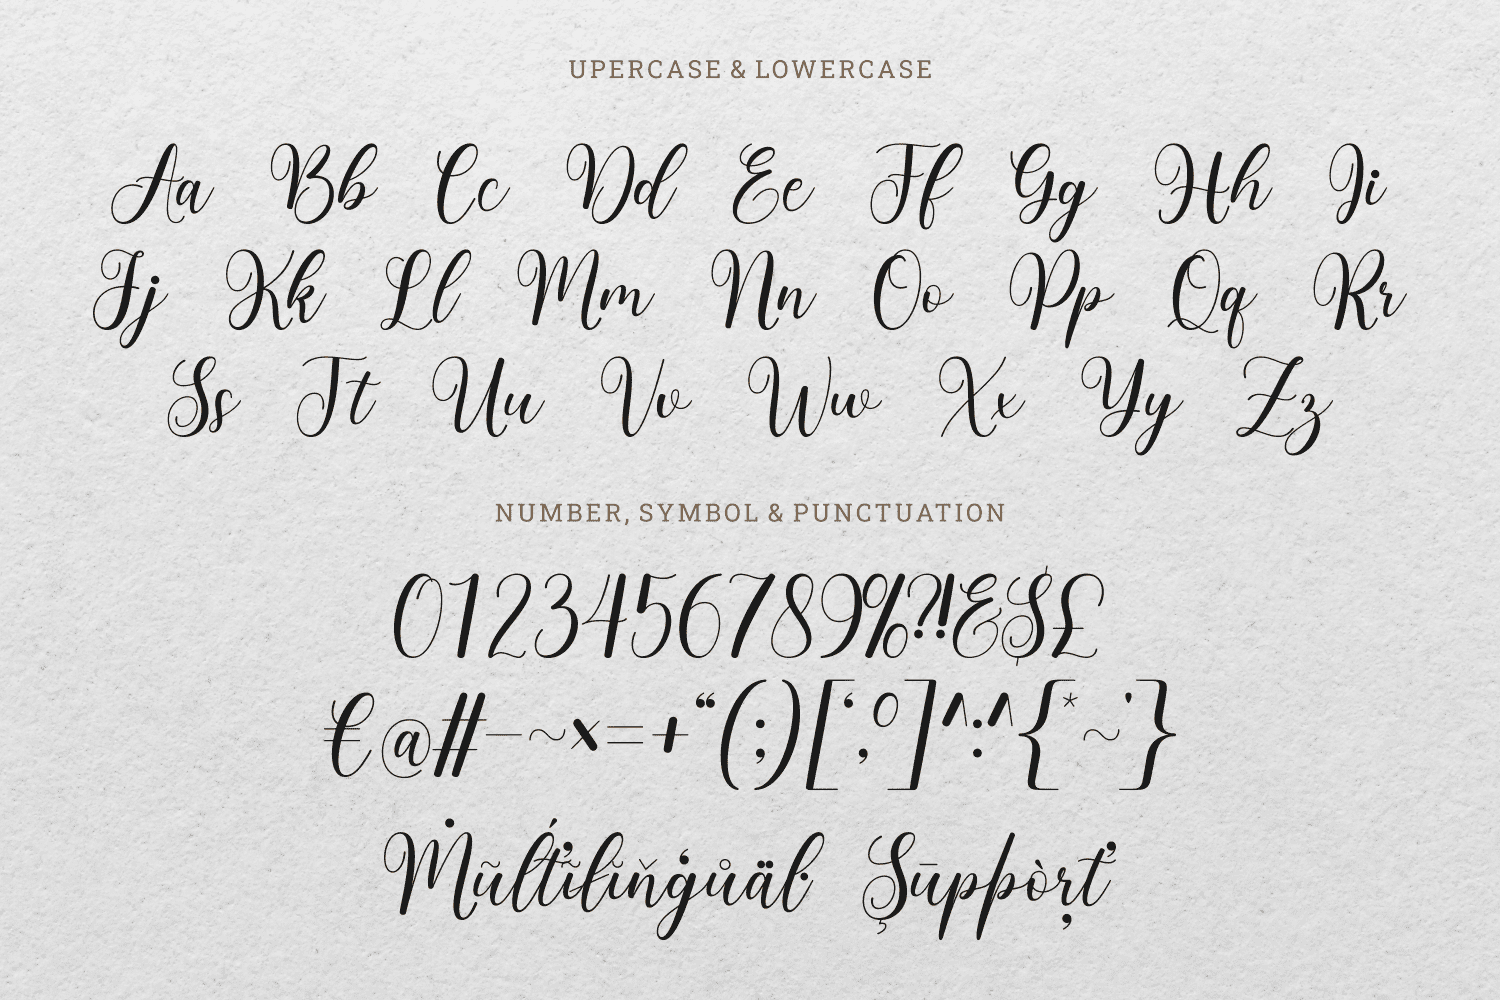 UPERCASE & LOWERCASE
Aa Bb Cc Dd Ee Ff Gg Hh Ii
Jj Kk Ll Mm Nn Oo Pp Qq Rr
Ss Tt Uu Vv Ww Xx Yy Zz
NUMBER, SYMBOL & PUNCTUATION
0123456789%?!&$£
€@#-~×=+“(;)[‘,º]^:^{*~'}
Ṁũlťĩlĭňģůäŀ Şūppòŗť